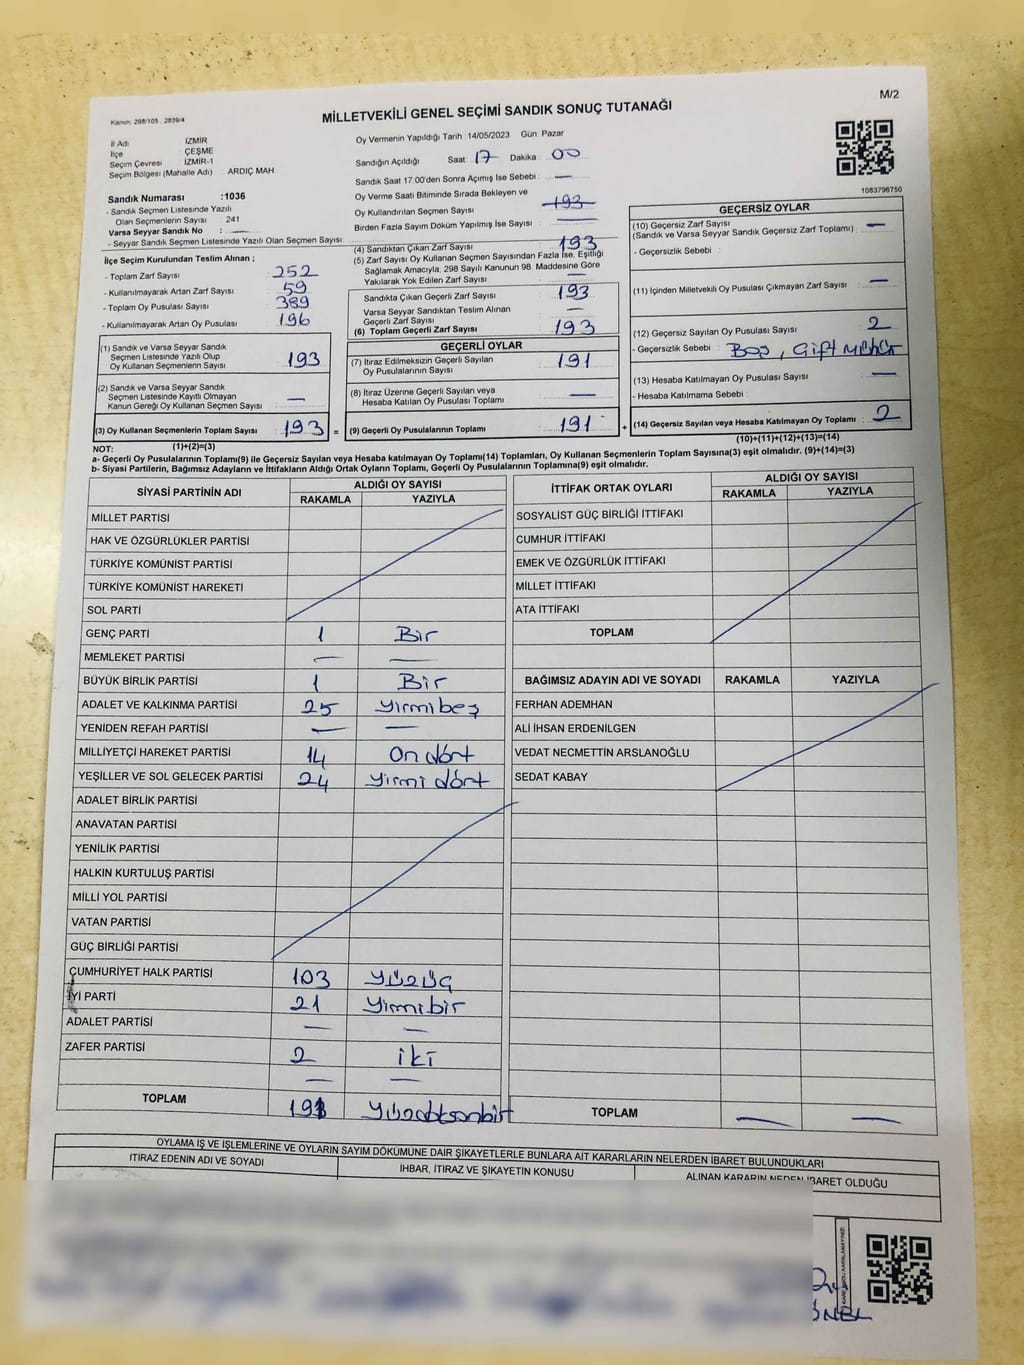 M/2
Kanun: 298/105 , 2839/4
MİLLETVEKİLİ GENEL SEÇİMİ SANDIK SONUÇ TUTANAĞI
İl Adı İZMİR
İlçe ÇEŞME
Seçim Çevresi İZMİR-1
Seçim Bölgesi (Mahalle Adı) ARDIÇ MAH
Sandık Numarası :1036
- Sandık Seçmen Listesinde Yazılı
Olan Seçmenlerin Sayısı 241
Varsa Seyyar Sandık No : —
- Seyyar Sandık Seçmen Listesinde Yazılı Olan Seçmen Sayısı:
Oy Vermenin Yapıldığı Tarih :14/05/2023 Gün: Pazar
Sandığın Açıldığı Saat 17 Dakika 00
Sandık Saat 17.00'den Sonra Açılmış İse Sebebi : —
Oy Verme Saati Bitiminde Sırada Bekleyen ve
Oy Kullandırılan Seçmen Sayısı 193
Birden Fazla Sayım Döküm Yapılmış İse Sayısı : —
1083796750
İlçe Seçim Kurulundan Teslim Alınan ;
- Toplam Zarf Sayısı : 252
- Kullanılmayarak Artan Zarf Sayısı : 59
- Toplam Oy Pusulası Sayısı : 389
- Kullanılmayarak Artan Oy Pusulası : 196
(1) Sandık ve Varsa Seyyar Sandık
Seçmen Listesinde Yazılı Olup
Oy Kullanan Seçmenlerin Sayısı 193
(2) Sandık ve Varsa Seyyar Sandık
Seçmen Listesinde Kayıtlı Olmayan
Kanun Gereği Oy Kullanan Seçmen Sayısı : —
(3) Oy Kullanan Seçmenlerin Toplam Sayısı 193 =
(1)+(2)=(3)
(4) Sandıktan Çıkan Zarf Sayısı : 193
(5) Zarf Sayısı Oy Kullanan Seçmen Sayısından Fazla İse, Eşitliği
Sağlamak Amacıyla, 298 Sayılı Kanunun 98. Maddesine Göre
Yakılarak Yok Edilen Zarf Sayısı : —
Sandıkta Çıkan Geçerli Zarf Sayısı : 193
Varsa Seyyar Sandıktan Teslim Alınan
Geçerli Zarf Sayısı : —
(6) Toplam Geçerli Zarf Sayısı : 193
GEÇERLİ OYLAR
(7) İtiraz Edilmeksizin Geçerli Sayılan
Oy Pusulalarının Sayısı : 191
(8) İtiraz Üzerine Geçerli Sayılan veya
Hesaba Katılan Oy Pusulası Toplamı : —
(9) Geçerli Oy Pusulalarının Toplamı : 191 +
GEÇERSİZ OYLAR
(10) Geçersiz Zarf Sayısı : —
(Sandık ve Varsa Seyyar Sandık Geçersiz Zarf Toplamı)
- Geçersizlik Sebebi :
(11) İçinden Milletvekili Oy Pusulası Çıkmayan Zarf Sayısı : —
(12) Geçersiz Sayılan Oy Pusulası Sayısı : 2
- Geçersizlik Sebebi : Boş , Çift Mühür
(13) Hesaba Katılmayan Oy Pusulası Sayısı : —
- Hesaba Katılmama Sebebi :
(14) Geçersiz Sayılan veya Hesaba Katılmayan Oy Toplamı : 2
(10)+(11)+(12)+(13)=(14)
NOT:
a- Geçerli Oy Pusulalarının Toplamı(9) ile Geçersiz Sayılan veya Hesaba katılmayan Oy Toplamı(14) Toplamları, Oy Kullanan Seçmenlerin Toplam Sayısına(3) eşit olmalıdır. (9)+(14)=(3)
b- Siyasi Partilerin, Bağımsız Adayların ve İttifakların Aldığı Ortak Oyların Toplamı, Geçerli Oy Pusulalarının Toplamına(9) eşit olmalıdır.
SİYASİ PARTİNİN ADI ALDIĞI OY SAYISI
RAKAMLA YAZIYLA
MİLLET PARTİSİ
HAK VE ÖZGÜRLÜKLER PARTİSİ
TÜRKİYE KOMÜNİST PARTİSİ
TÜRKİYE KOMÜNİST HAREKETİ
SOL PARTİ
GENÇ PARTİ 1 Bir
MEMLEKET PARTİSİ — —
BÜYÜK BİRLİK PARTİSİ 1 Bir
ADALET VE KALKINMA PARTİSİ 25 yirmibeş
YENİDEN REFAH PARTİSİ — —
MİLLİYETÇİ HAREKET PARTİSİ 14 On dört
YEŞİLLER VE SOL GELECEK PARTİSİ 24 Yirmi dört
ADALET BİRLİK PARTİSİ
ANAVATAN PARTİSİ
YENİLİK PARTİSİ
HALKIN KURTULUŞ PARTİSİ
MİLLİ YOL PARTİSİ
VATAN PARTİSİ
GÜÇ BİRLİĞİ PARTİSİ
CUMHURİYET HALK PARTİSİ 103 Yüzüç
İYİ PARTİ 21 Yirmibir
ADALET PARTİSİ — —
ZAFER PARTİSİ 2 iki
— —
TOPLAM 191 Yüzdoksanbir
İTTİFAK ORTAK OYLARI ALDIĞI OY SAYISI
RAKAMLA YAZIYLA
SOSYALİST GÜÇ BİRLİĞİ İTTİFAKI
CUMHUR İTTİFAKI
EMEK VE ÖZGÜRLÜK İTTİFAKI
MİLLET İTTİFAKI
ATA İTTİFAKI
TOPLAM
BAĞIMSIZ ADAYIN ADI VE SOYADI RAKAMLA YAZIYLA
FERHAN ADEMHAN
ALİ İHSAN ERDENİLGEN
VEDAT NECMETTİN ARSLANOĞLU
SEDAT KABAY
TOPLAM — —
OYLAMA İŞ VE İŞLEMLERİNE VE OYLARIN SAYIM DÖKÜMÜNE DAİR ŞİKAYETLERLE BUNLARA AİT KARARLARIN NELERDEN İBARET BULUNDUKLARI
İTİRAZ EDENİN ADI VE SOYADI İHBAR, İTİRAZ VE ŞİKAYETİN KONUSU ALINAN KARARIN NEDEN İBARET OLDUĞU